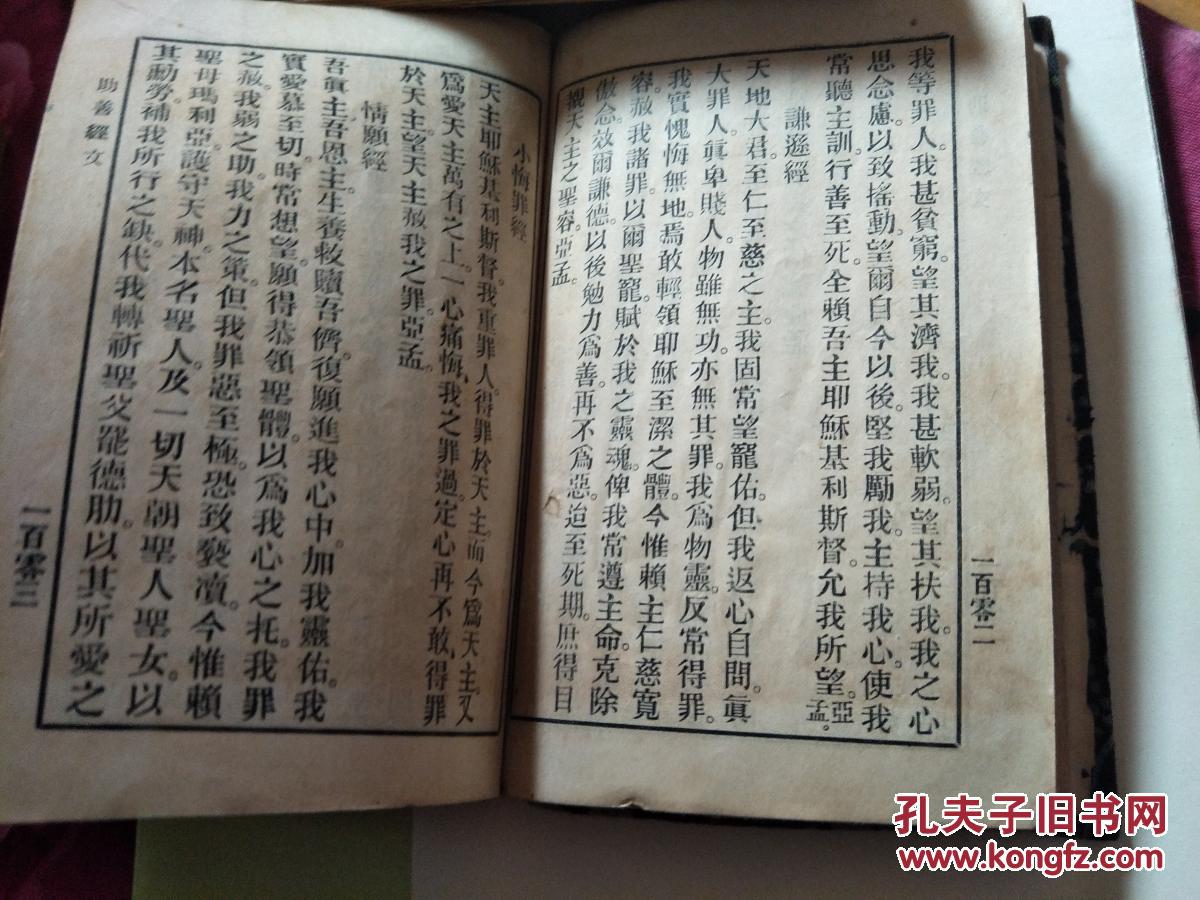 一百零二
我等罪人。我甚貧窮。望其濟我。我甚軟弱。望其扶我。我之心
思念慮。以致搖動。望爾自今以後。堅我勵我。主持我心。使我
常聽主訓。行善至死。全賴吾主耶穌基利斯督。允我所望。亞孟。
謙遜經
天地大君。至仁至慈之主。我固常望寵佑。但我返心自問。眞
大罪人。眞卑賤人。物雖無功。亦無其罪。我爲物靈。反常得罪。
我實愧悔無地。焉敢輕領耶穌至潔之體。今惟賴主仁慈寬
容。赦我諸罪。以爾聖寵。賦於我之靈魂。俾我常遵主命。克除
傲念。效爾謙德。以後勉力爲善。再不爲惡。迨至死期。庶得目
覩天主之聖容。亞孟。
小悔罪經
天主耶穌基利斯督。我重罪人。得罪於天主。而今爲天主。又
爲愛天主萬有之上。一心痛悔我之罪過。定心再不敢得罪
於天主。望天主赦我之罪。亞孟。
情願經
吾眞主。吾恩主。生養救贖吾儕。復願進我心中。加我靈佑。我
實愛慕至切。時常想望。願得恭領聖體。以爲我心之托。我罪
之赦。我弱之助。我力之策。但我罪惡至極。恐致褻瀆。今惟賴
聖母瑪利亞。護守天神。本名聖人。及一切天朝聖人聖女。以
其勳勞。補我所行之缺。代我轉祈聖父罷德肋。以其所愛之
助善經文
一百零三
孔夫子旧书网
www.kongfz.com